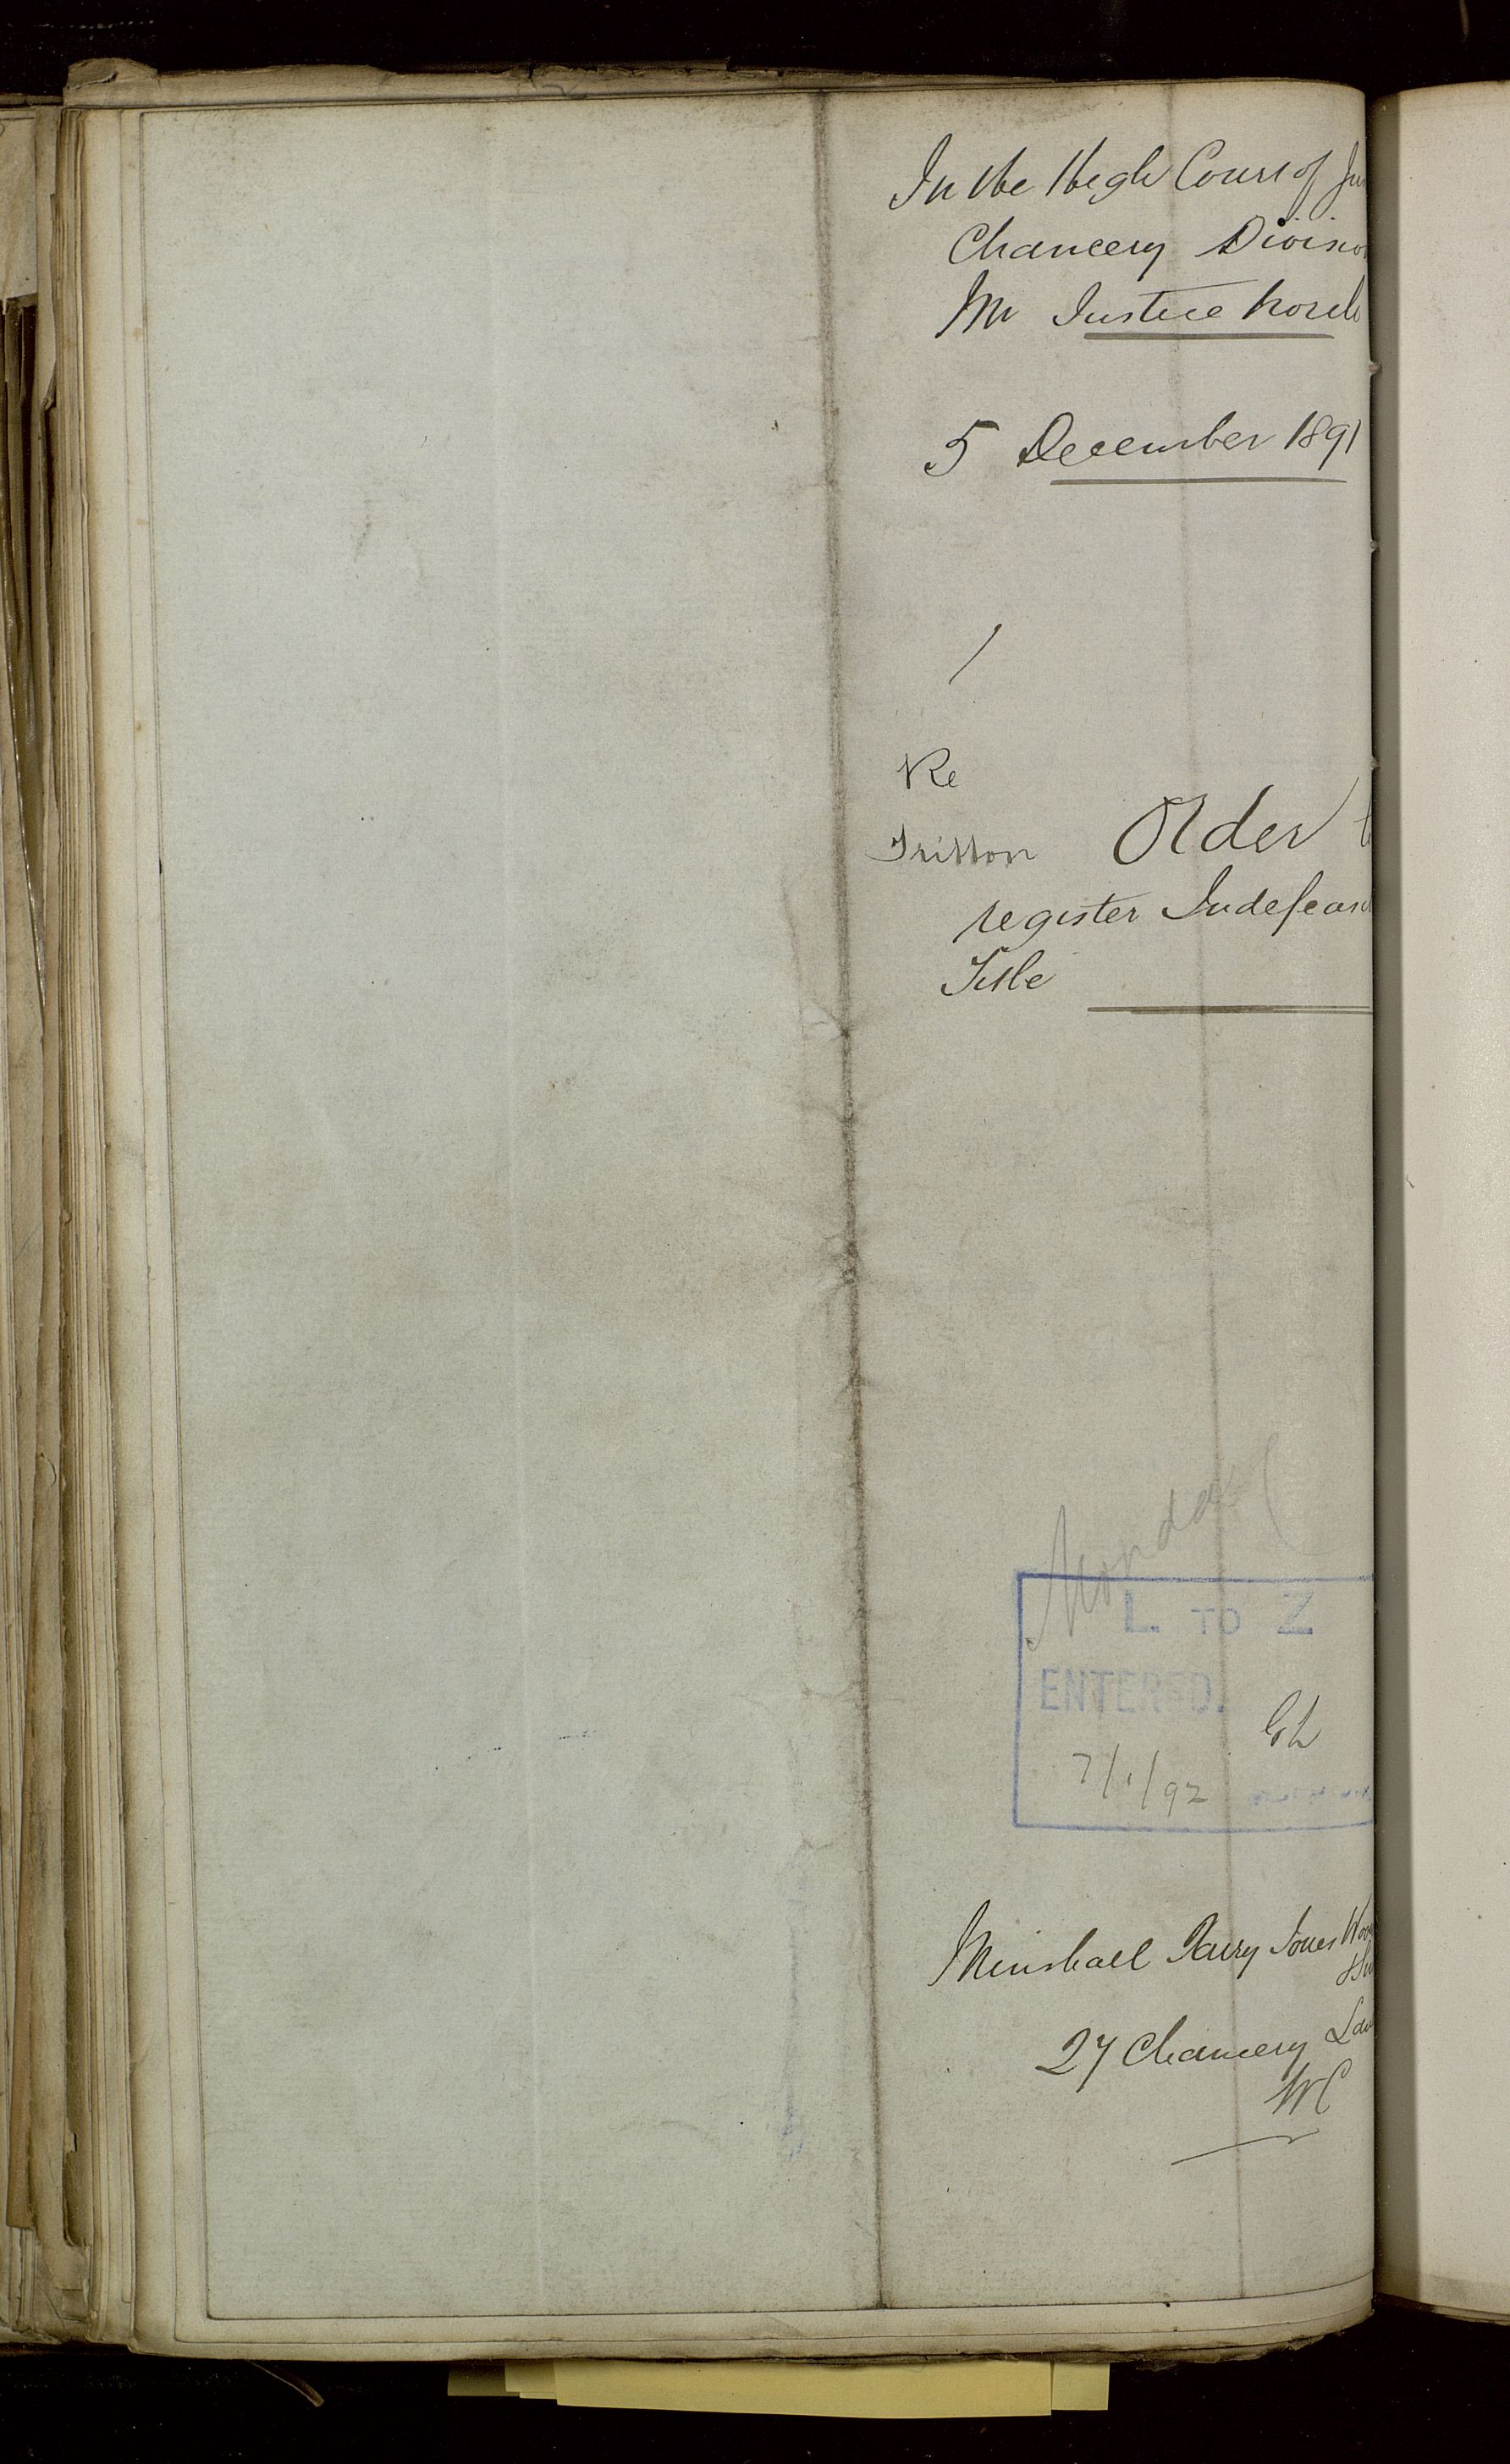 In the High Court of Jus
Chancery Division
Mr Justice North
5 December 1891
Re
Tritton Order to
register Indefeasi
Title
Monday
L TO Z
ENTERED.
7/1/92
Minshall Parry Jones Woo
27 Chancery Lan
WC